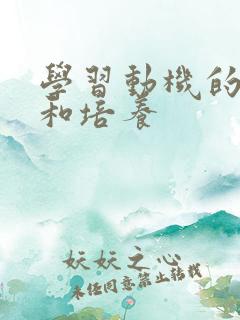 學習動機的
和培養
妖妖之心
未經同意禁止轉載